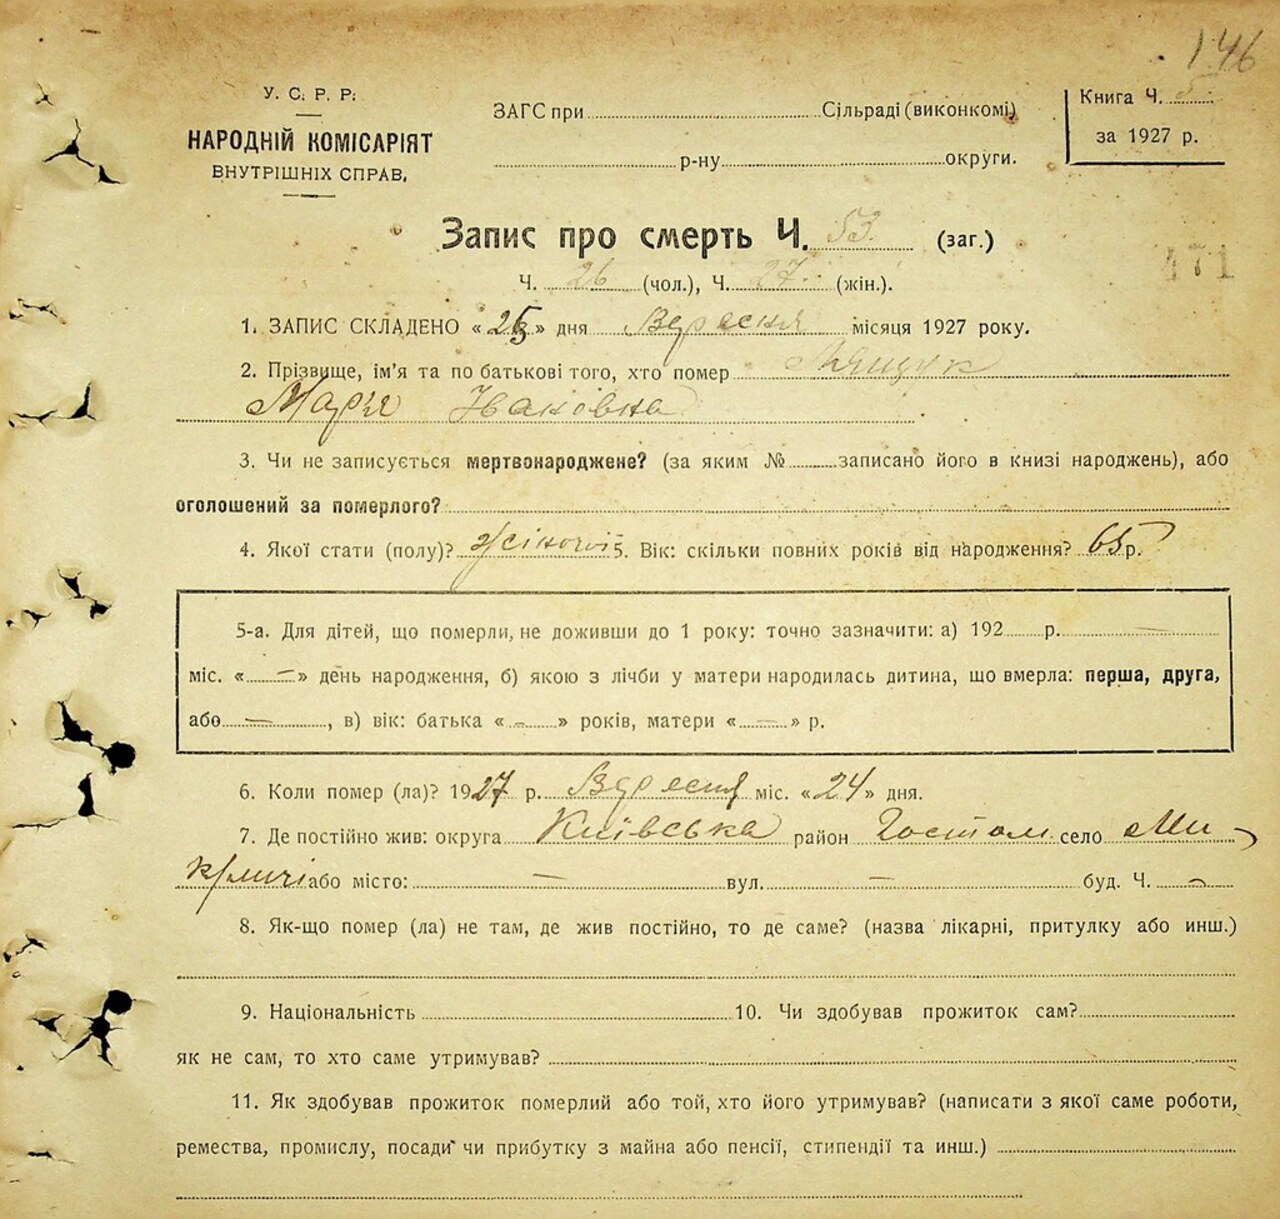 146
У. С. Р. Р.
НАРОДНІЙ КОМІСАРІЯТ
ВНУТРІШНІХ СПРАВ.
ЗАГС при Сільраді (виконкомі)
р-ну округи.
Книга Ч.
за 1927 р.
Запис про смерть Ч. 53. (заг.)
171
Ч. 26 (чол.), Ч. 27 (жін.).
1. ЗАПИС СКЛАДЕНО « » дня Вересня місяця 1927 року.
2. Прізвище, ім'я та по батькові того, хто помер
Марія Іванівна
3. Чи не записується мертвонароджене? (за яким № записано його в книзі народжень), або
оголошений за померлого?
4. Якої стати (полу)? жіночої 5. Вік: скільки повних років від народження? 65 р.
5-а. Для дітей, що померли, не доживши до 1 року: точно зазначити: а) 192 р. —
міс. « — » день народження, б) якою з лічби у матери народилась дитина, що вмерла: перша, друга,
або — , в) вік: батька « — » років, матери « — » р.
6. Коли помер (ла)? 1927 р. Вересня міс. «24» дня.
7. Де постійно жив: округа Київська район Гостом. село Ми-
куличі або місто: — вул. — буд. Ч. —
8. Як-що помер (ла) не там, де жив постійно, то де саме? (назва лікарні, притулку або инш.)
9. Національність 10. Чи здобував прожиток сам?
як не сам, то хто саме утримував?
11. Як здобував прожиток померлий або той, хто його утримував? (написати з якої саме роботи,
ремества, промислу, посади чи прибутку з майна або пенсії, стипендії та инш.)